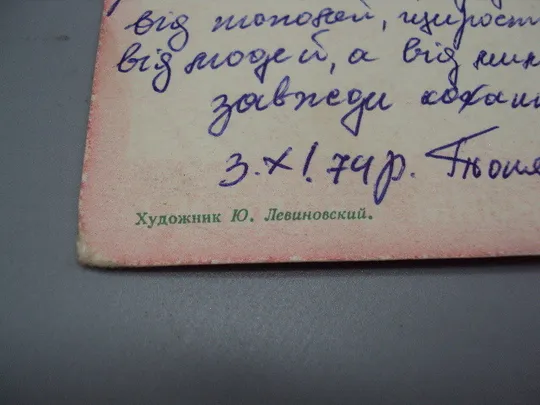 від тополей, щирост
від людей, а від мин
завжди кохан
3.XI.74р. Твоя
Художник Ю. Левиновский.